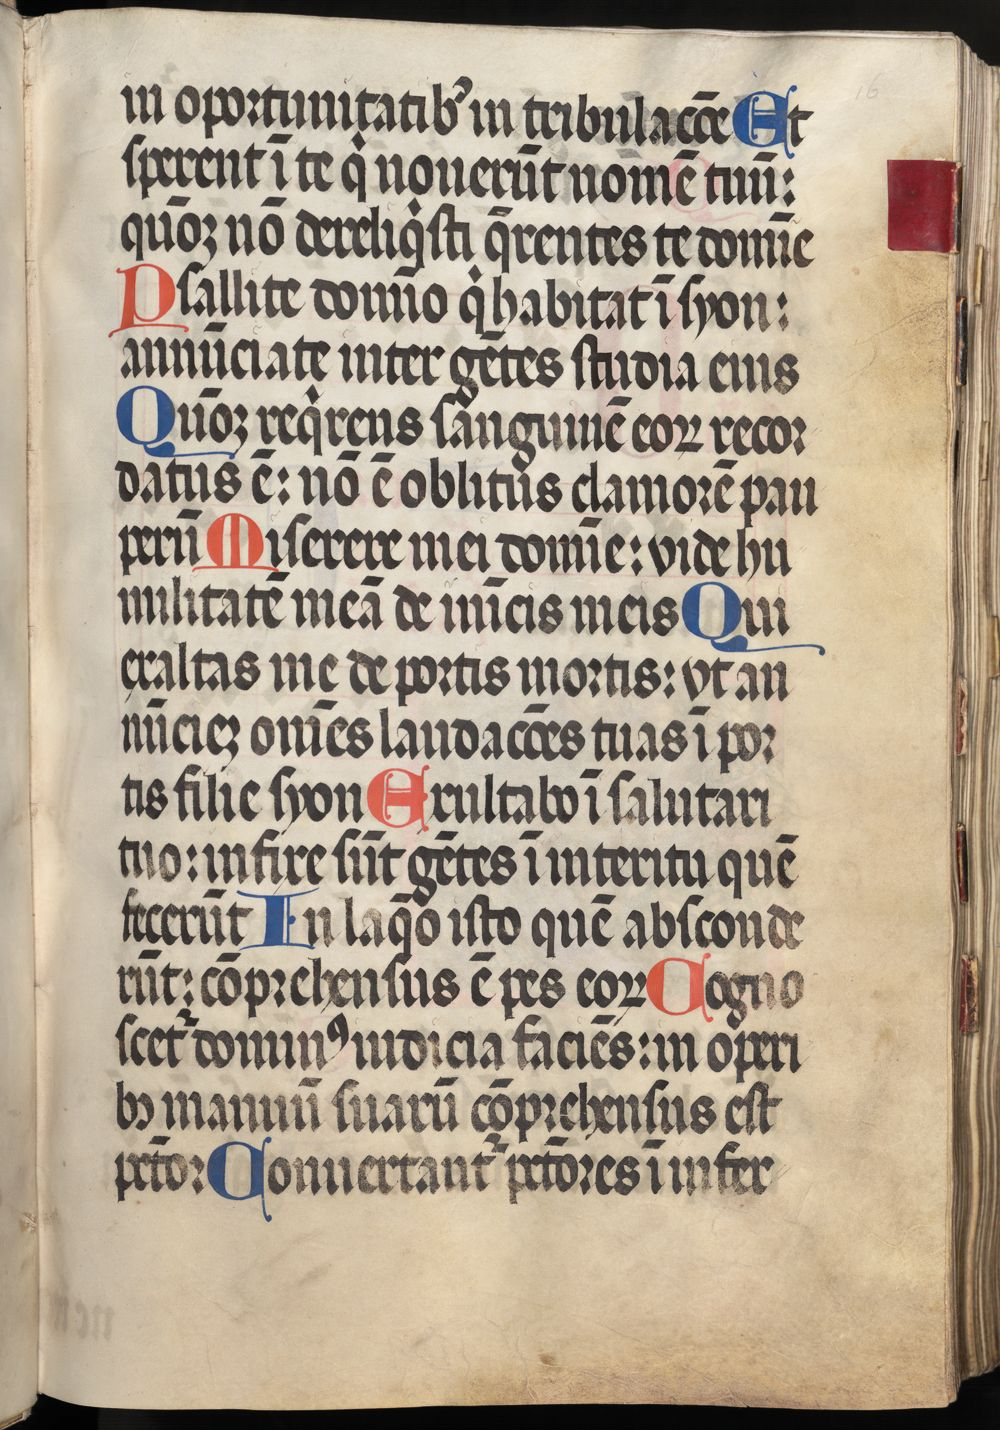 in oportunitatib⁹ in tribulac̄c̄e Et
sperent ī te q̇ nouerūt nomē tuū:
quōꝝ nō dereliq̇sti q̄rentes te domīe
Psallite domīo q̇ habitat ī syon:
annūciate inter gētes studia eius
Quōꝝ req̇rens sanguinē eoꝝ recor
datus ē: nō ē oblitus clamorē pau
perū Miserere mei domīe: vide hu
militatē meā de inīcis meis Qui
exaltas me de portis mortis: vt an
nūcieꝫ om̄es laudac̄c̄es tuas ī por
tis filie syon Exultabo ī salutari
tuo: infixe sūt gētes ī interitu quē
fecerūt In laq̄o isto quē absconde
rūt: cōprehensus ē pes eoꝝ Cogno
scet᷑ domin⁹ iudicia faciēs: in operi
bꝫ manuū suarū cōprehensus est
pc̄tor Conuertant᷑ pc̄tores ī infer
16